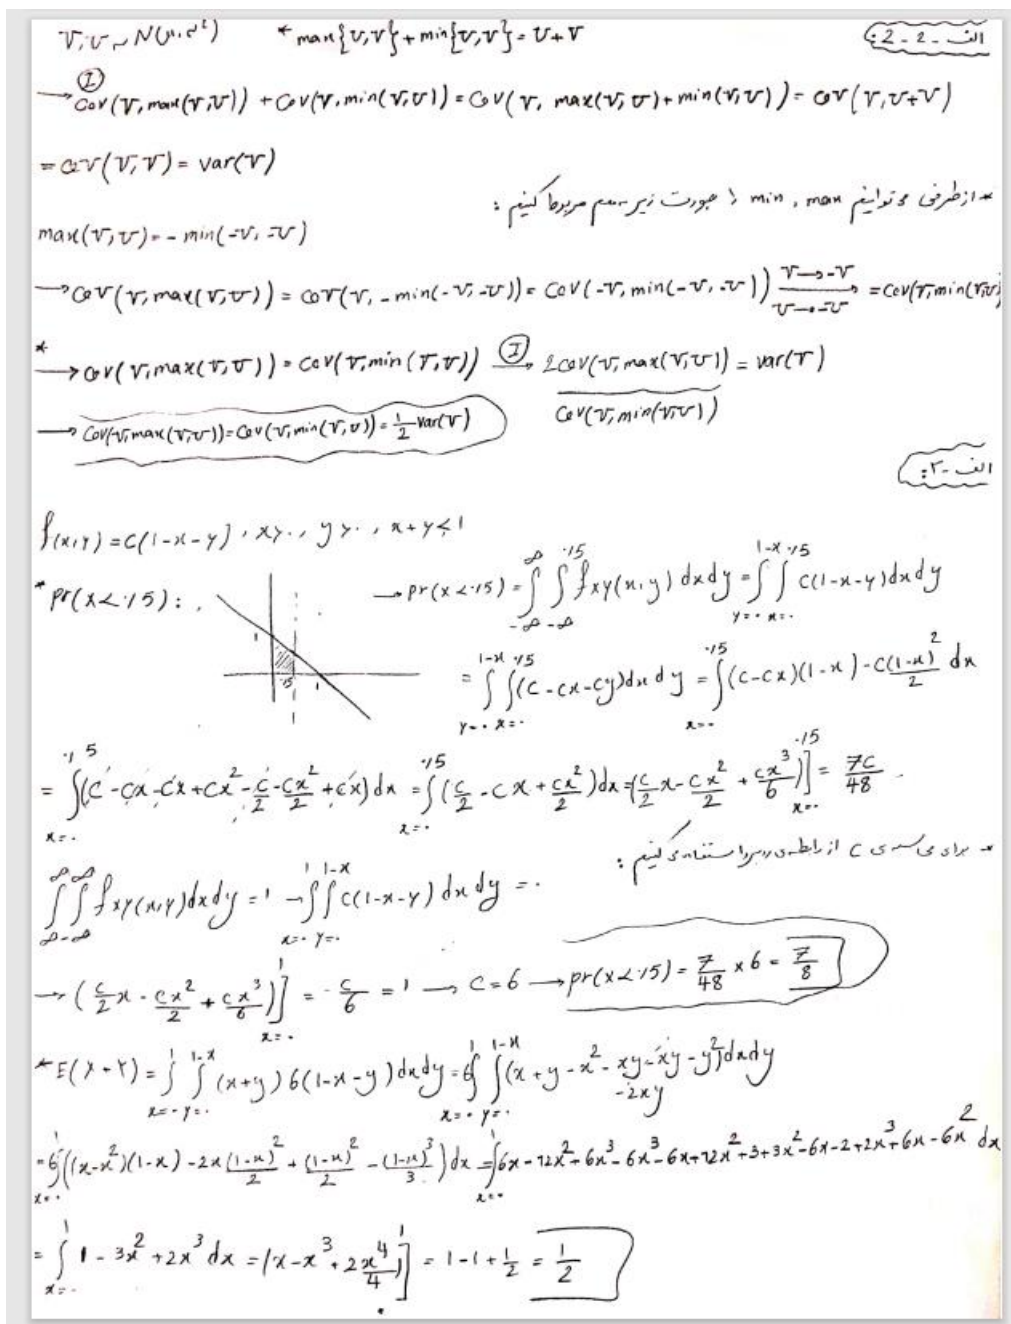 الف - 2 - 2:
V, U ~ N(μ, σ²)   * max{U,V} + min{U,V} = U+V
→ (I) Cov(V, max(V,U)) + Cov(V, min(V,U)) = Cov(V, max(V,U) + min(V,U)) = Cov(V, U+V)
= Cov(V,V) = var(V)
* از طرفی می توانیم max و min را بصورت زیر بهم مربوط کنیم :
max(V,U) = - min(-V, -U)
→ Cov(V, max(V,U)) = Cov(V, - min(-V, -U)) = Cov(-V, min(-V, -U)) V → -V U → -U = Cov(V, min(V,U))
* → Cov(V, max(V,U)) = Cov(V, min(V,U)) (I) → 2Cov(V, max(V,U)) = var(V)
Cov(V, min(V,U))
→ Cov(V, max(V,U)) = Cov(V, min(V,U)) = 1/2 var(V)
الف - ۳:
f(x,y) = C(1-x-y), x>۰, y>۰, x+y<1
* pr(x<۰/5): → pr(x<۰/5) = ∫_{-∞}^{∞} ∫_{-∞}^{۰/5} f_{xy}(x,y) dxdy = ∫_{y=۰}^{1-x} ∫_{x=۰}^{۰/5} C(1-x-y) dxdy
1 ۰/5 1
= ∫_{y=۰}^{1-x} ∫_{x=۰}^{۰/5} (C-Cx-Cy) dxdy = ∫_{x=۰}^{۰/5} (C-Cx)(1-x) - C(1-x)²/2 dx
= ∫_{x=۰}^{۰/5} (C-Cx-Cx+Cx²-C/2-Cx²/2+Cx) dx = ∫_{x=۰}^{۰/5} (C/2-Cx+Cx²/2) dx = (C/2 x - Cx²/2 + Cx³/6)]_{x=۰}^{۰/5} = 7C/48
* برای محاسبه ی C از رابطه ی روبرو استفاده می کنیم :
∫_{-∞}^{∞} ∫_{-∞}^{∞} f_{xy}(x,y) dxdy = 1 → ∫_{x=۰}^{1} ∫_{y=۰}^{1-x} C(1-x-y) dxdy = ۰
→ (C/2 x - Cx²/2 + Cx³/6)]_{x=۰}^{1} = C/6 = 1 → C=6 → pr(x<۰/5) = 7/48 × 6 = 7/8
* E(X+Y) = ∫_{x=۰}^{1} ∫_{y=۰}^{1-x} (x+y) 6(1-x-y) dxdy = 6∫_{x=۰}^{1} ∫_{y=۰}^{1-x} (x+y-x²-xy-xy-y²) dxdy
-2xy
= 6∫_{x=۰}^{1} ((x-x²)(1-x) - 2x(1-x)²/2 + (1-x)²/2 - (1-x)³/3) dx = ∫_{x=۰}^{1} 6x-12x²+6x³-6x³-6x+12x²+3+3x²-6x-2+2x³+6x-6x² dx
= ∫_{x=۰}^{1} 1-3x²+2x³ dx = (x-x³+2x⁴/4)]_{۰}^{1} = 1-1+1/2 = 1/2